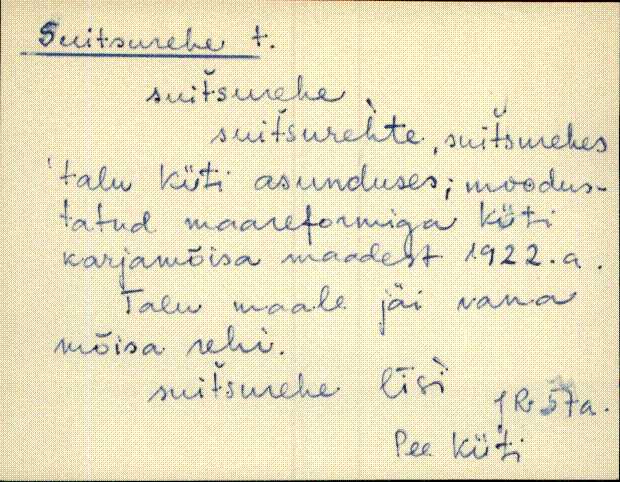 Suitsurehe t.
suit̆surehe
suit̆sureh̀te, suit̆surehes
'talu Küti asunduses; moodus-
tatud maareformiga Küti
karjamõisa maadest 1922. a.
Talu maale jäi vana
mõisa rehi.
suit̆surehe līsì
57a.
Pee Küti